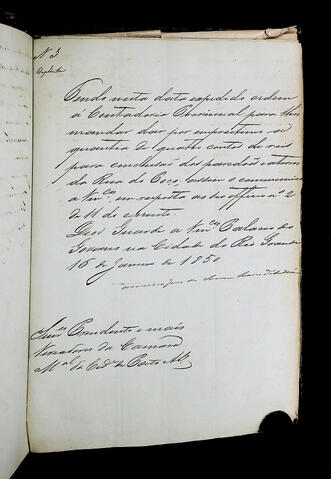 N 3
Tendo nesta data expedido ordem
á Contadoria Provincial para lhes
mandar dar por emprestimo a
quantia de quatro contos de reis
para conclusão das paredes e aterro
da Rua do Poço, assim o communico
a Vm.ces em resposta ao seo officio n.º 2
de 11 do corrente.
Deos Guarde a Vm.ces Palacio do
Governo na Cidade do Rio Grande
16 de Janeiro de 1850
Snr.es Presidente e mais
Vereadores da Camara
M.al da Cid.e de Porto Al.e